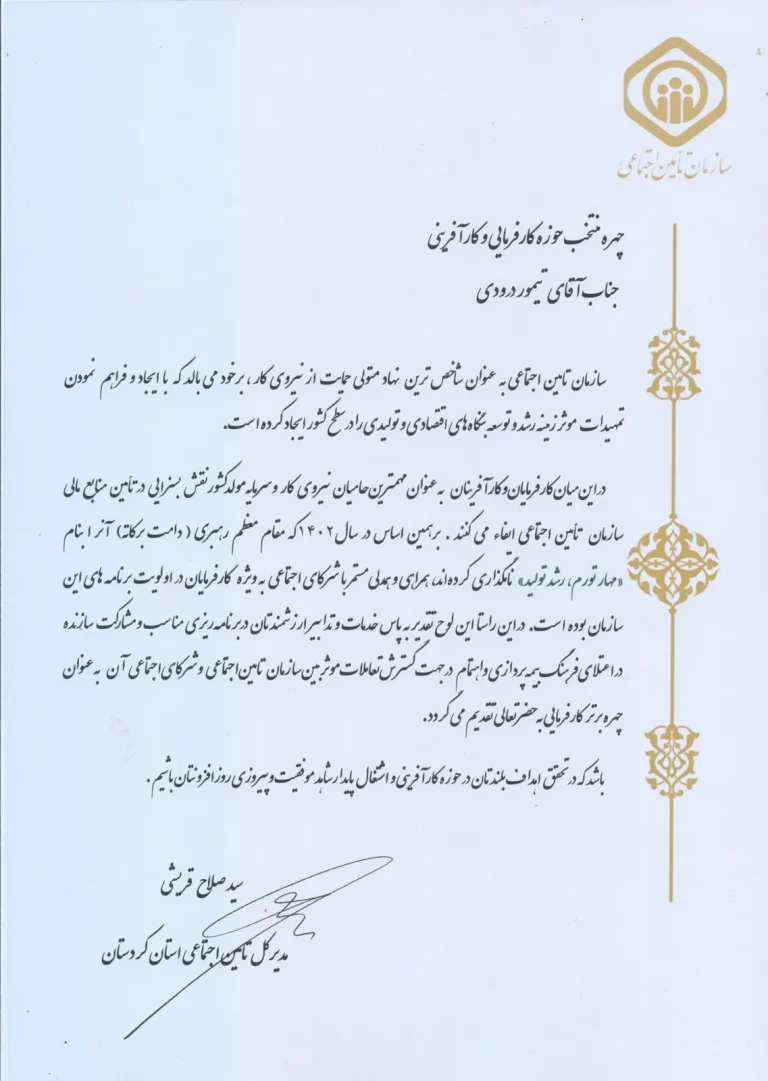 سازمان تأمین اجتماعی
چهره منتخب حوزه کارفرمایی و کارآفرینی
جناب آقای تیمور درودی
سازمان تامین اجتماعی به عنوان شاخص ترین نهاد متولی حمایت از نیروی کار، برخود می بالد که با ایجاد و فراهم نمودن
تمهیدات موثر زمینه رشد و توسعه بنگاه های اقتصادی و تولیدی را در سطح کشور ایجاد کرده است.
در این میان کارفرمایان و کارآفرینان به عنوان مهمترین حامیان نیروی کار و سرمایه مولد کشور نقش بسزایی در تأمین منابع مالی
سازمان تأمین اجتماعی ایفاء می کنند. برهمین اساس در سال ۱۴۰۲ که مقام معظم رهبری (دامت برکاته) آنرا بنام
«مهار تورم، رشد تولید» نامگذاری کرده اند، همراهی و همدلی مستمر با شرکای اجتماعی به ویژه کارفرمایان در اولویت برنامه های این
سازمان بوده است. در این راستا این لوح تقدیر به پاس خدمات و تدابیر ارزشمندتان در برنامه ریزی مناسب و مشارکت سازنده
در اعتلای فرهنگ بیمه پردازی و اهتمام در جهت گسترش تعاملات موثر بین سازمان تامین اجتماعی و شرکای اجتماعی آن به عنوان
چهره برتر کارفرمایی به حضرتعالی تقدیم می گردد.
باشد که در تحقق اهداف بلندتان در حوزه کارآفرینی و اشتغال پایدار شاهد موفقیت و پیروزی روزافزونتان باشیم.
سید صلاح قریشی
مدیرکل تامین اجتماعی استان کردستان